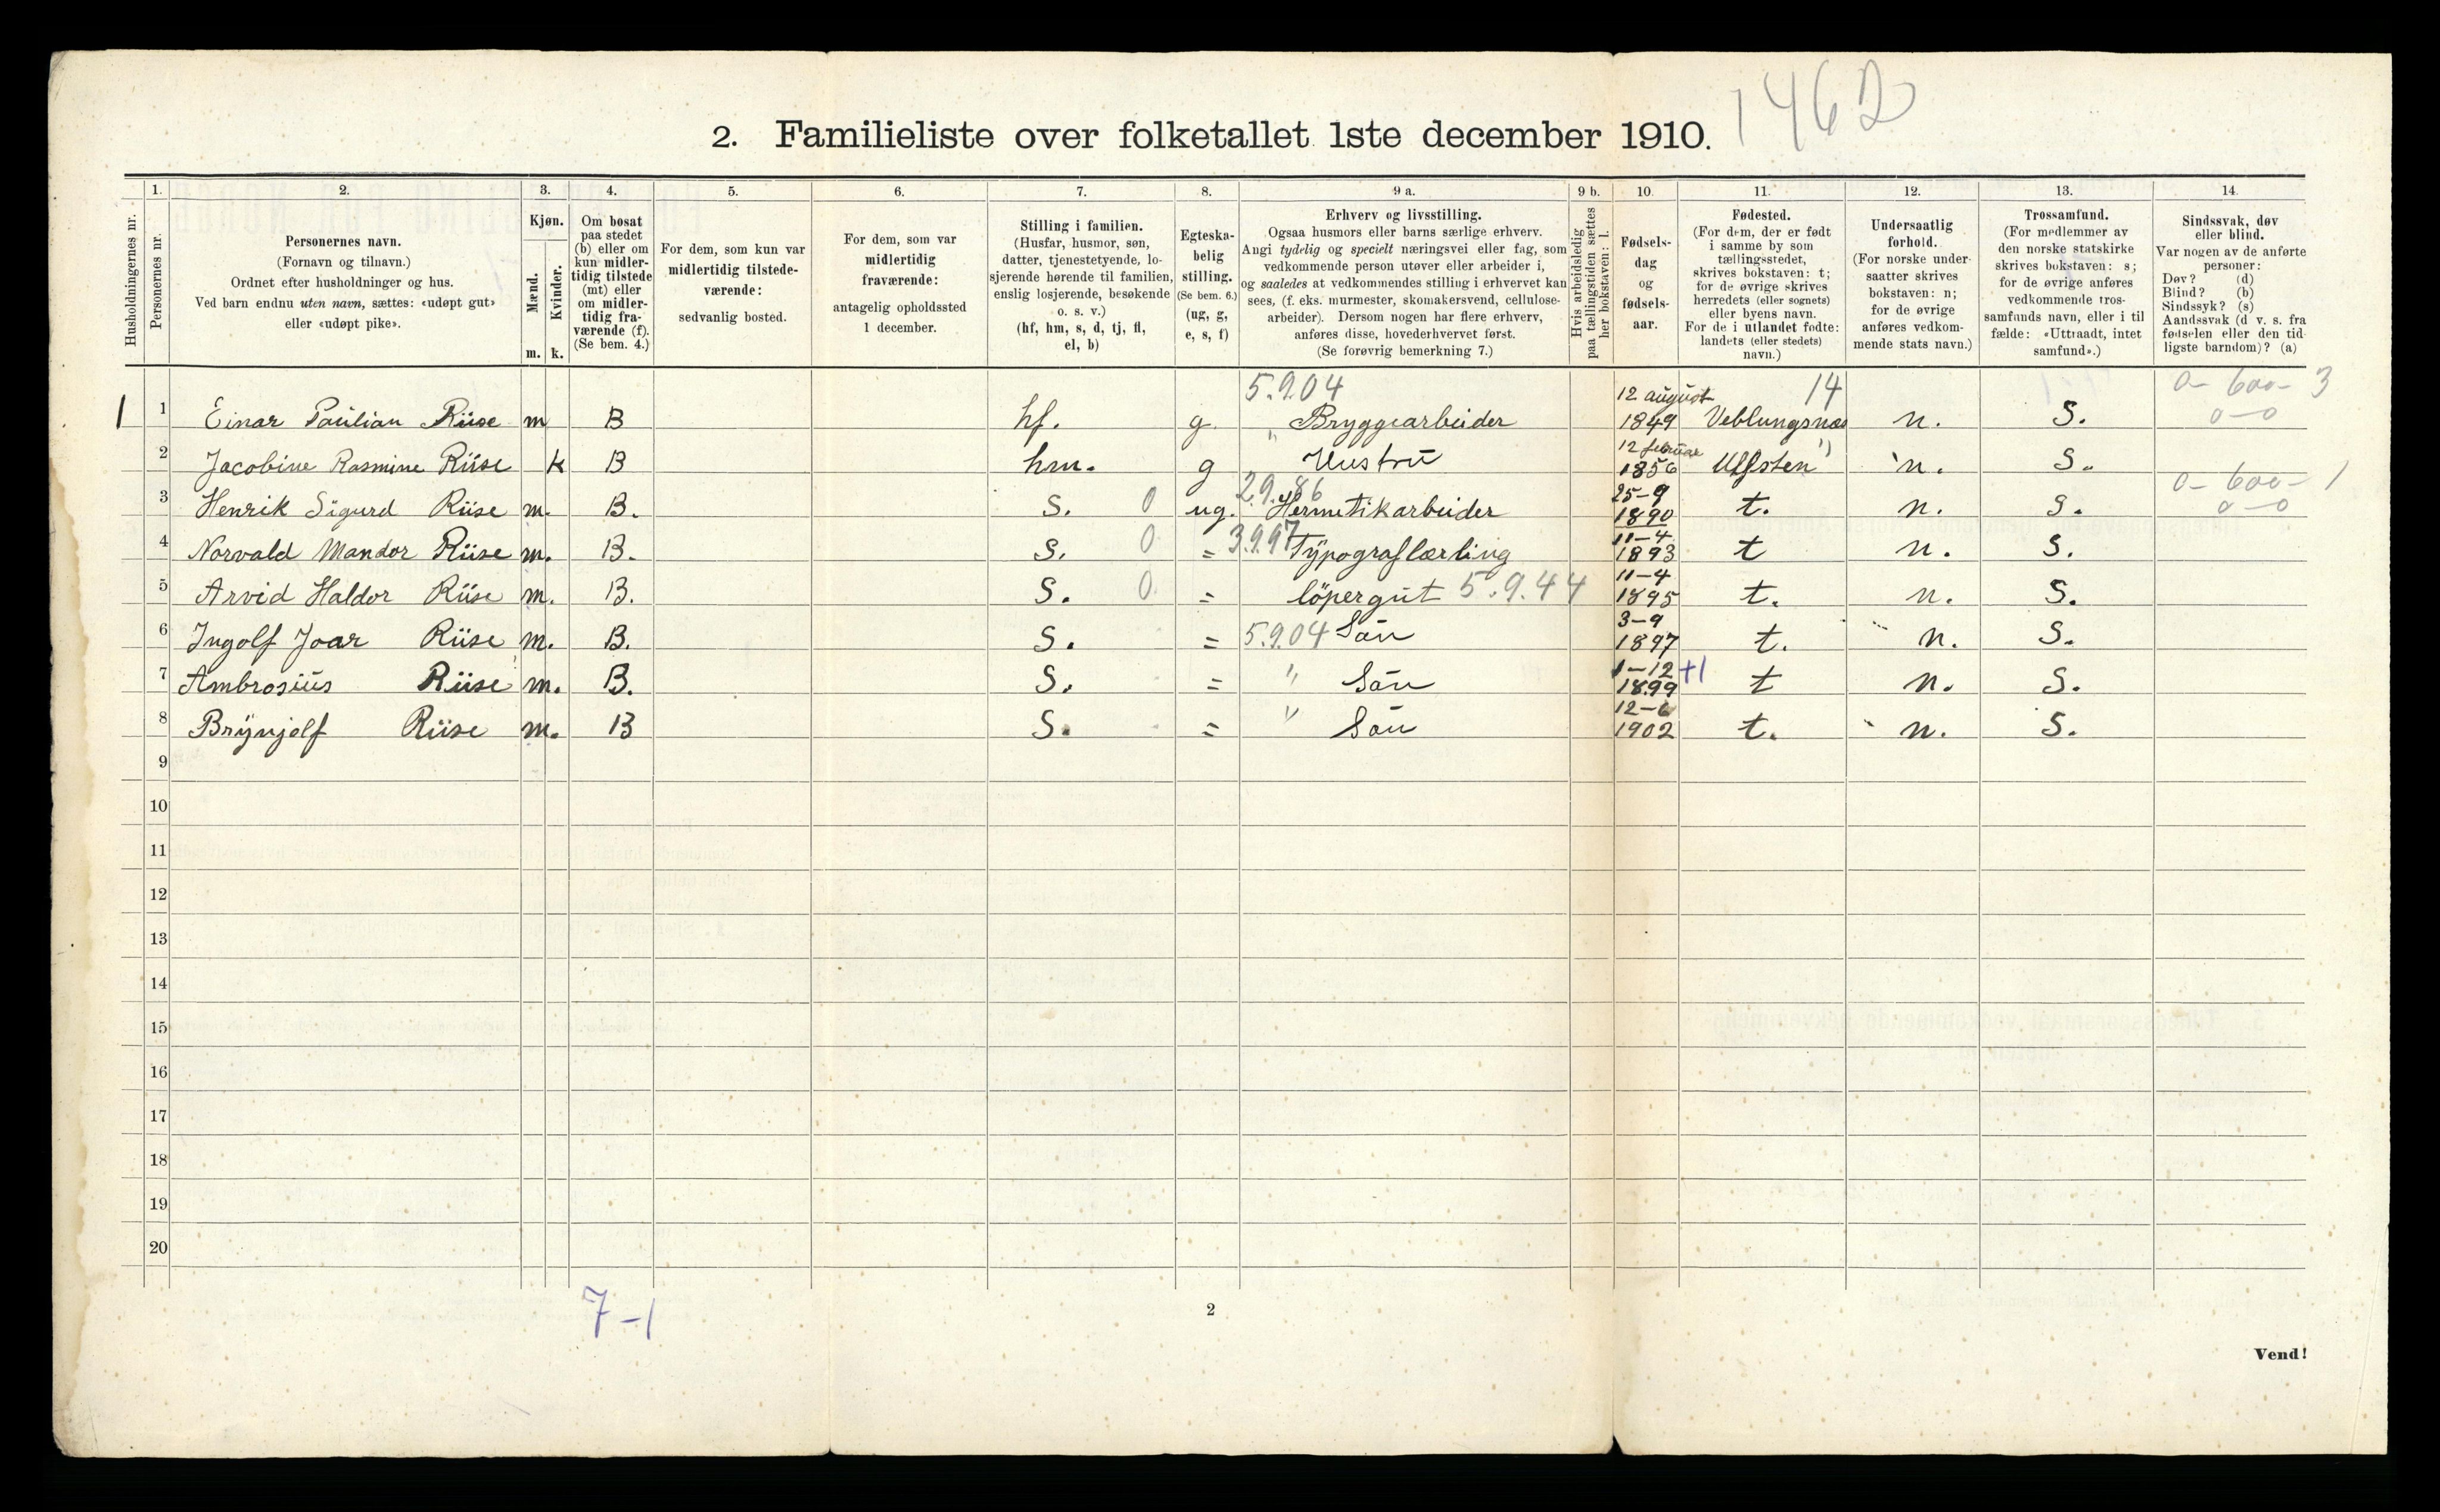 1462
2. Familieliste over folketallet 1ste december 1910.
Husholdningernes nr.
1. 2. 3. 4. 5. 6. 7. 8. 9 a. 9 b. 10. 11. 12. 13. 14.
Personernes nr.
Personernes navn.
(Fornavn og tilnavn.)
Ordnet efter husholdninger og hus.
Ved barn endnu uten navn, sættes: «udøpt gut»
eller «udøpt pike».
Kjøn.
Mænd.
Kvinder.
m. k.
Om bosat
paa stedet
(b) eller om
kun midler-
tidig tilstede
(mt) eller
om midler-
tidig fra-
værende (f).
(Se bem. 4.)
For dem, som kun var
midlertidig tilstede-
værende:
sedvanlig bosted.
For dem, som var
midlertidig
fraværende:
antagelig opholdssted
1 december.
Stilling i familien.
(Husfar, husmor, søn,
datter, tjenestetyende, lo-
sjerende hørende til familien,
enslig losjerende, besøkende
o. s. v.)
(hf, hm, s, d, tj, fl,
el, b)
Egteska-
belig
stilling.
(Se bem. 6.)
(ug, g,
e, s, f)
Erhverv og livsstilling.
Ogsaa husmors eller barns særlige erhverv.
Angi tydelig og specielt næringsvei eller fag, som
vedkommende person utøver eller arbeider i,
og saaledes at vedkommendes stilling i erhvervet kan
sees, (f. eks. murmester, skomakersvend, cellulose-
arbeider). Dersom nogen har flere erhverv,
anføres disse, hovederhvervet først.
(Se forøvrig bemerkning 7.)
Hvis arbeidsledig
paa tællingstiden sættes
her bokstaven: l.
Fødsels-
dag
og
fødsels-
aar.
Fødested.
(For dem, der er født
i samme by som
tællingsstedet,
skrives bokstaven: t;
for de øvrige skrives
herredets (eller sognets)
eller byens navn.
For de i utlandet fødte:
landets (eller stedets)
navn.)
Undersaatlig
forhold.
(For norske under-
saatter skrives
bokstaven: n;
for de øvrige
anføres vedkom-
mende stats navn.)
Trossamfund.
(For medlemmer av
den norske statskirke
skrives bokstaven: s;
for de øvrige anføres
vedkommende tros-
samfunds navn, eller i til-
fælde: «Uttraadt, intet
samfund».)
Sindssvak, døv
eller blind.
Var nogen av de anførte
personer:
Døv? (d)
Blind? (b)
Sindssyk? (s)
Aandssvak (d v. s. fra
fødselen eller den tid-
ligste barndom)? (a)
5.9.04 12 august 14 0-600-3
1 1 Einar Paulian Riise m B hf. g. Bryggearbeider 1849 Veblungsnæs n. S. 0-0
12 februar
2 Jacobine Rasmine Riise k B hm. g Hustru 1856 Ulfsten n. S.
2.9.86 25-9 0-600-1
3 Henrik Sigurd Riise m. B. S. 0 ug. Hermetikarbeider 1890 t. n. S. 0-0
11-4
4 Norvald Mandor Riise m. B. S. 0 = 3.9.97 Typograflærling 1893 t n. S.
11-4
5 Arvid Haldor Riise m. B. S. 0 = løpergut 5.9.44 1895 t. n. S.
3-9
6 Ingolf Joar Riise m. B. S. = 5.9.04 Søn 1897 t. n. S.
1-12 +1
7 Ambrosius Riise m. B. S. = " Søn 1899 t n. S.
12-6
8 Brynjolf Riise m. B S. = " Søn 1902 t. n. S.
9
10
11
12
13
14
15
16
17
18
19
20
7-1
2
Vend!